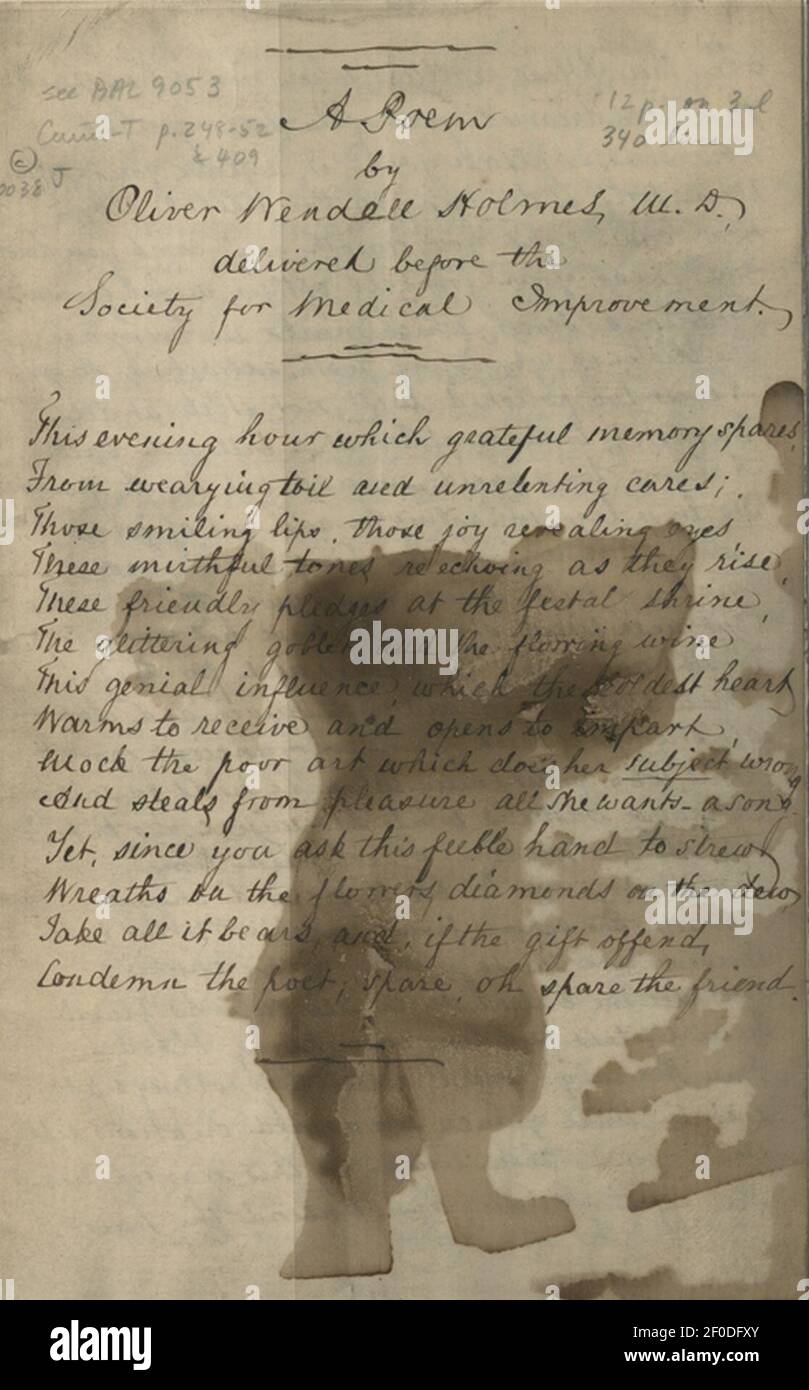 see BAL 9053
12 p. on 3 l
p. 248-52
340
& 409
A Poem
by
Oliver Wendell Holmes, M. D.,
delivered before the
Society for Medical Improvement.
This evening hour which grateful memory spares,
From wearying toil and unrelenting cares;
Those smiling lips, those joy revealing eyes,
These mirthful tones reechoing as they rise,
These friendly pledges at the festal shrine,
The glittering goblet the flowing wine
This genial influence, which the coldest heart
Warms to receive and opens to impart,
Mock the poor art which does her subject wrong
And steals from pleasure all she wants - a song.
Yet, since you ask this feeble hand to strew
Wreaths on the flowers, diamonds on the dew,
Take all it bears, and, if the gift offend,
Condemn the poet; spare, oh spare the friend.
alamy
alamy
alamy
alamy
Image ID: 2F0DFXY
www.alamy.com